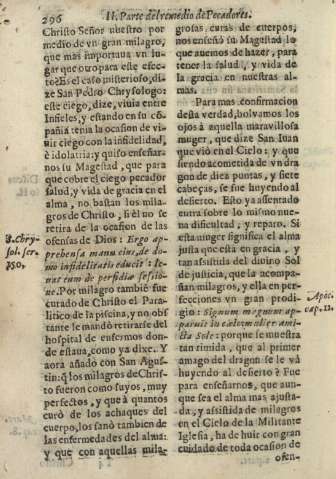 296
II. Parte del remedio de Pecadores.
Christo Señor nuestro por
medio de vn gran milagro,
que mas importaua vn lu-
gar que otro para este efec-
to? Es el caso misterioso, di-
ze San Pedro Chrysologo:
este ciego, dize, viuia entre
Infieles, y estando en su cõ-
pañia tenia la ocasion de vi-
uir ciego con la infidelidad,
è idolatria: y quiso enseñar-
nos su Magestad, que para
que cobre el ciego pecador
salud, y vida de gracia en el
alma, no bastan los mila-
gros de Christo, si èl no se
retira de la ocasion de las
ofensas de Dios: Ergo ap-
prehensa manu eius, de do-
mo infidelitatis educit: te-
nat eum de perfidiæ sessio-
ne. Por milagro tambiẽ fue
curado de Christo el Para-
litico de la piscina, y no obs
tante le mandò retirarse del
hospital de enfermos don-
de estaua, como ya dixe. Y
aora añado con San Agus-
tin: q̃ los milagros de Chris-
to fueron como suyos, muy
perfectos, y que à quantos
curò de los achaques del
cuerpo, los sanò tambien de
las enfermedades del alma:
y que con aquellas mila-
S. Chry-
sol. ser.
grosas curas de cuerpos,
nos enseñò su Magestad lo
que auemos de hazer, para
tener la salud, y vida de
la gracia en nuestras al-
mas.
Para mas confirmacion
desta verdad, bolvamos los
ojos à aquella maravillosa
muger, que dize San Iuan
que viò en el Cielo: y que
siendo acometida de vn dra
gon de diez puntas, y siete
cabeças, se fue huyendo al
desierto. Esto ya assentado
entra sobre lo mismo nue-
ua dificultad, y reparo. Si
esta muger significa el alma
justa que està en gracia, y
tan assistida del diuino Sol
de justicia, que la acompa-
ñan milagros, y ella en per-
fecciones vn gran prodi-
gio: Signum magnum ap-
paruit in cælo: mulier ami-
cta Sole: porque se muestra
tan timida, que al primer
amago del dragon se le và
huyendo al desierto? Fue
para enseñarnos, que aun-
que sea el alma mas ajusta-
da, y assistida de milagros
en el Cielo de la Militante
Iglesia, ha de huir con gran
cuidado de toda ocasion de
ofen-
Apoc.
cap. 12.